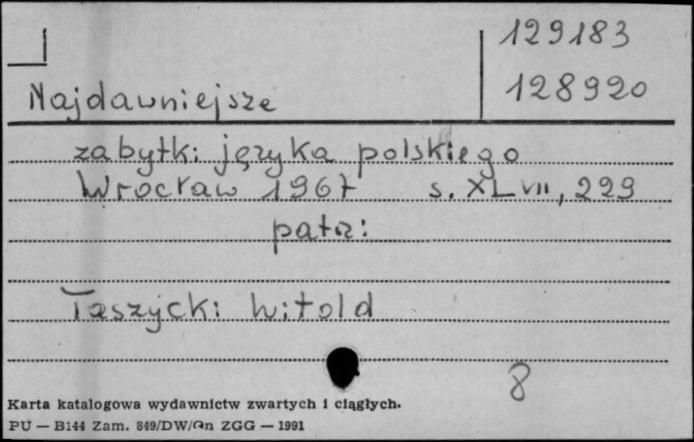 129183
Najdawniejsze 128920
zabytki języka polskiego
Wrocław 1967 s. XLVII, 229
patrz:
Taszycki Witold
8
Karta katalogowa wydawnictw zwartych i ciągłych.
PU — B144 Zam. 849/DW/On ZGG — 1991